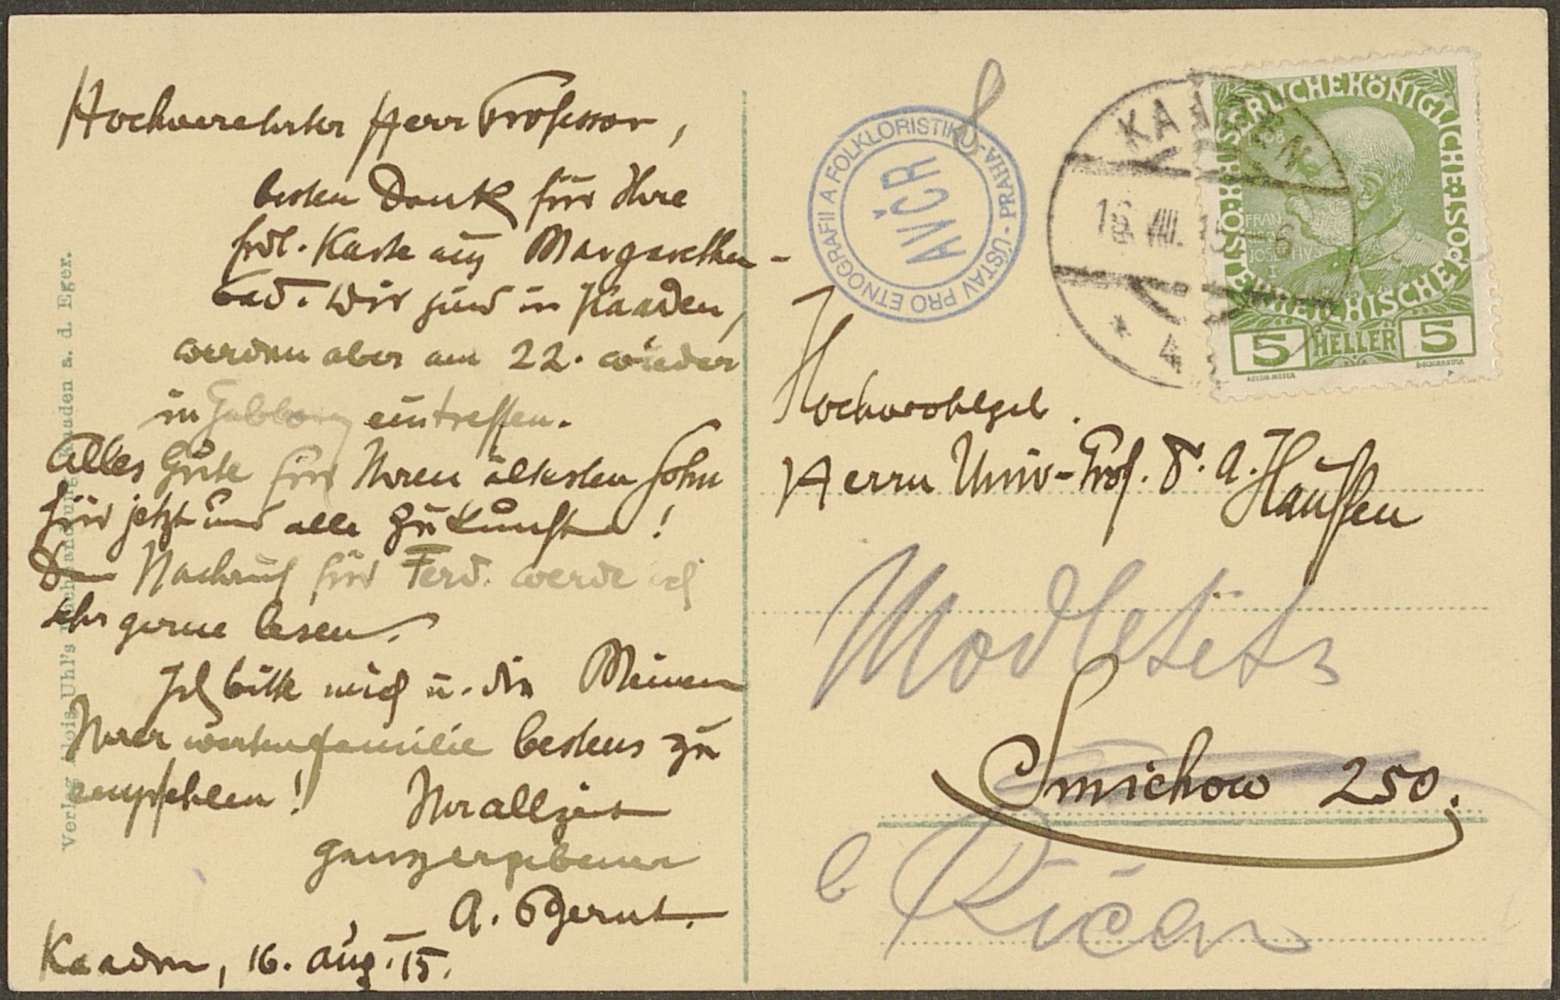 Hochverehrter Herr Professor,
besten Dank für Ihre
frdl. Karte aus Margarethen-
bad. Wir sind in Kaaden,
werden aber am 22. wieder
in Gablonz eintreffen.
Alles Gute für Ihren ältesten Sohn
für jetzt und alle Zukunft!
Den Nachruf für Ferd. werde ich
sehr gerne lesen.
Ich bitte mich u. die Meinen
Ihrer werten Familie bestens zu
empfehlen! Ihr allzeit
ganz ergebener
A. Bernt.
Kaaden, 16. Aug. 15.
Verlag Alois Uhl's Kaaden a. d. Eger.
ÚSTAV PRO ETNOGRAFII A FOLKLORISTIKU - PRAHA
AVČR
KAADEN
16. VIII. 15 - 6
* 4
KAISERLICHE KÖNIGLICHE
ÖSTERREICHISCHE POST
5 HELLER 5
Hochwohlgeb.
Herrn Univ-Prof. Dr. A. Hauffen
Modletitz
Smichow 250.
b Ričan